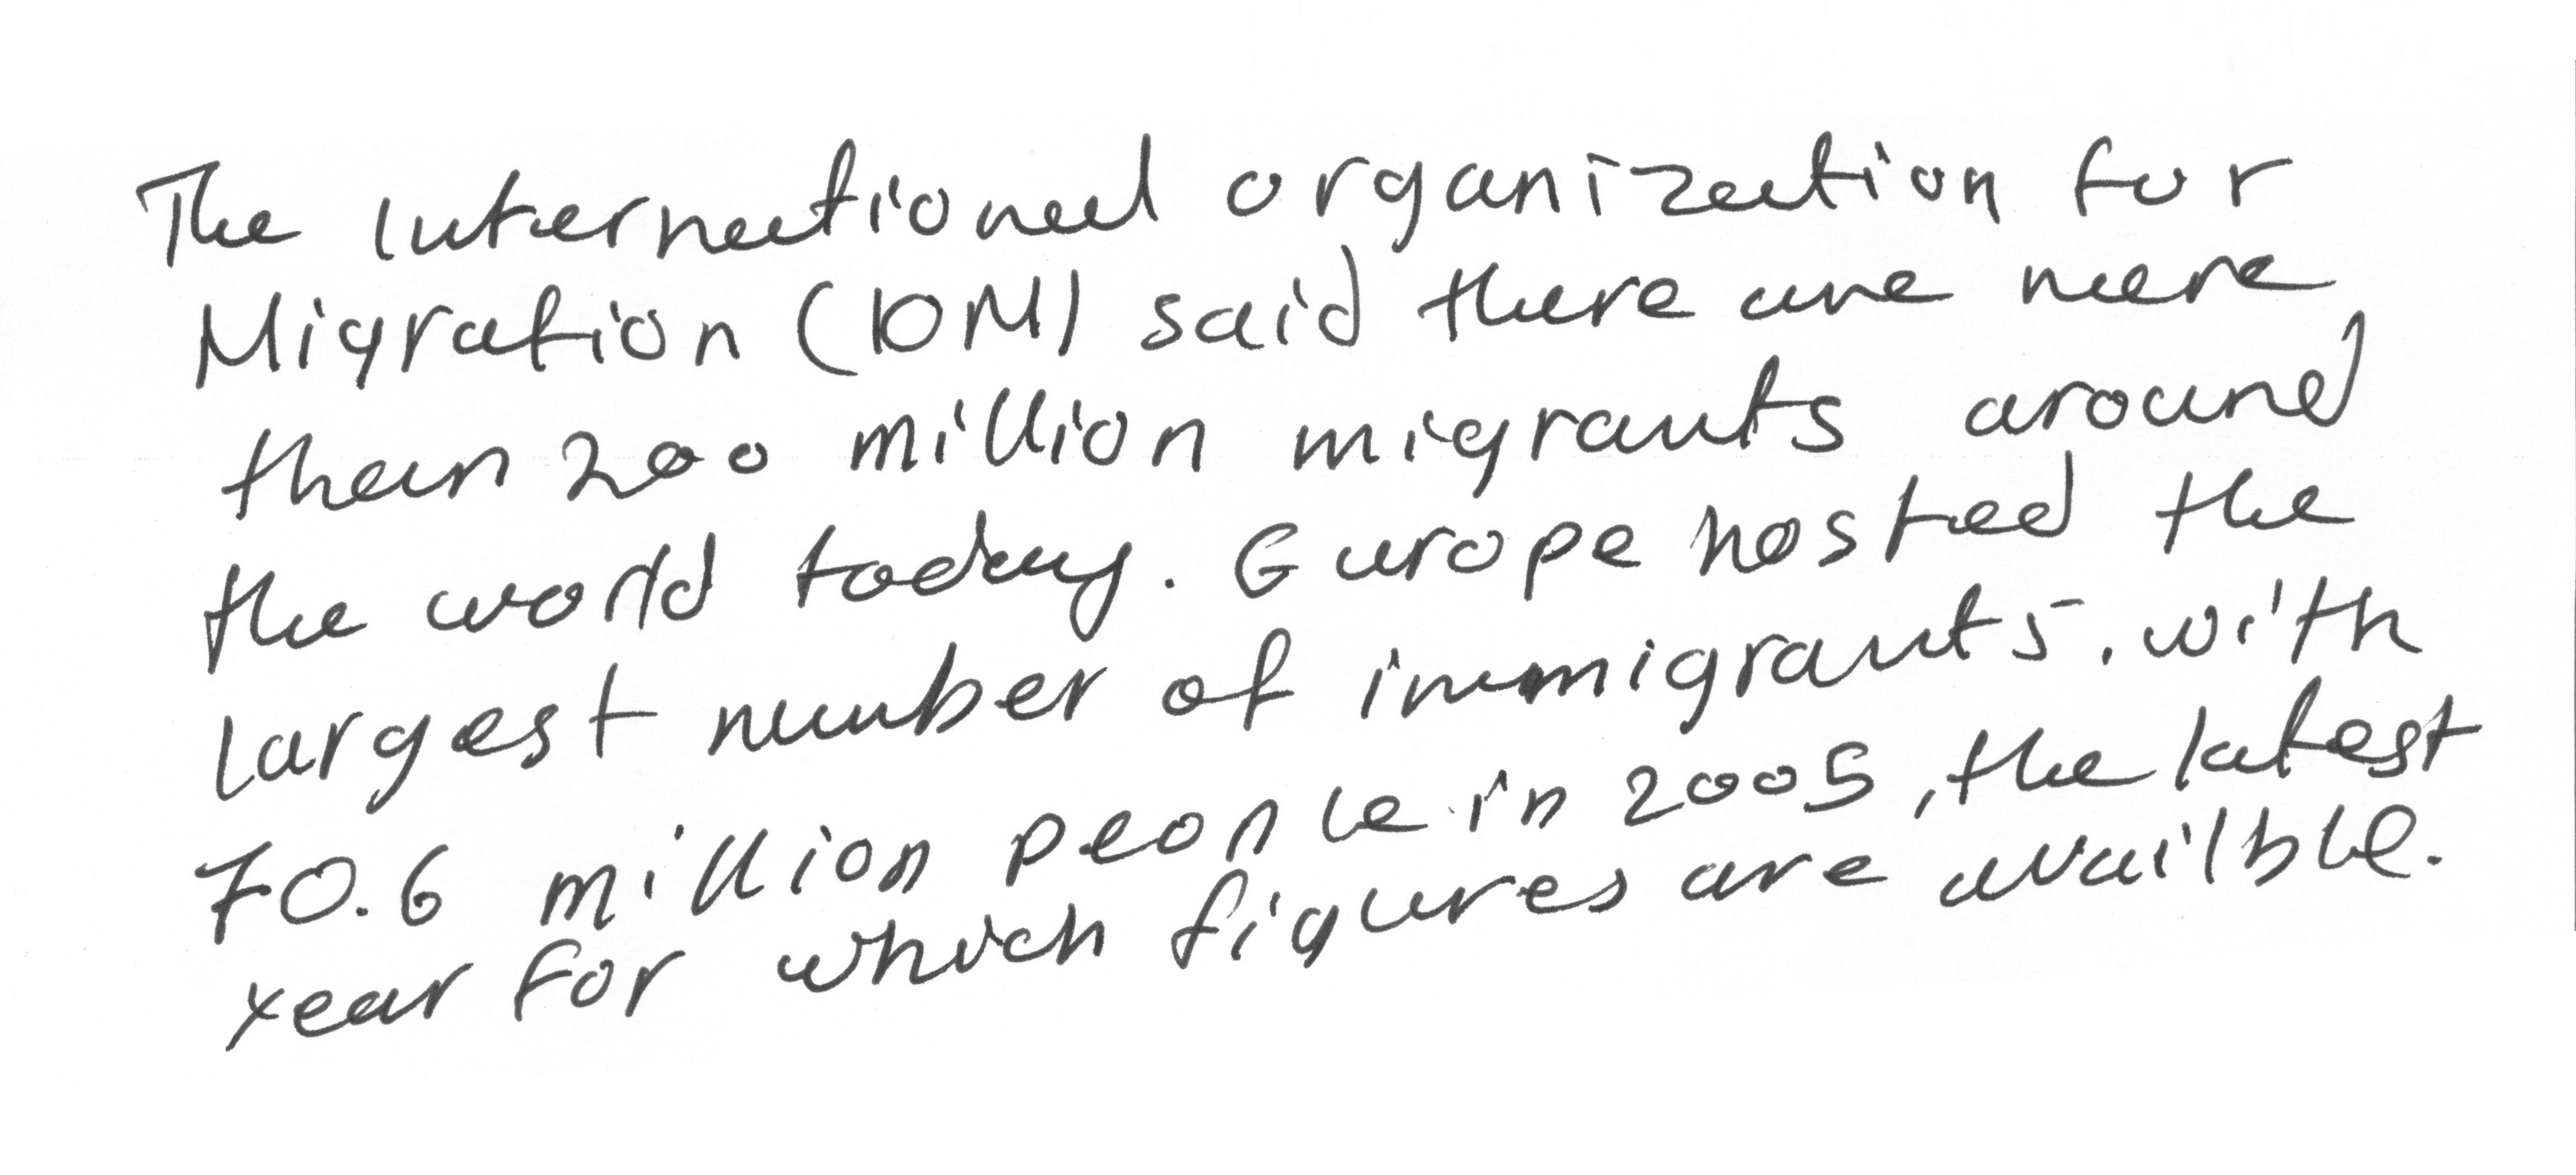 The International organization for
Migration (IOM) said there are more
than 200 million migrants around
the world today. Europe hosted the
largest number of immigrants, with
70.6 million people in 2005, the latest
year for which figures are availble.